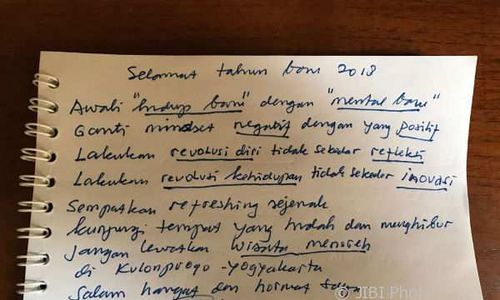 Selamat tahun baru 2018
Awali "hidup baru" dengan "mental baru"
Ganti mindset negatif dengan yang positif
Lakukan revolusi diri tidak sekadar refleksi
Lakukan revolusi kehidupan tidak sekadar inovasi
Sempatkan refreshing sejenak
kunjungi tempat yang indah dan menghibur
Jangan lewatkan wisata menoreh
di Kulonprogo - yogyakarta
Salam hangat dan hormat saya
© JIBI Photo